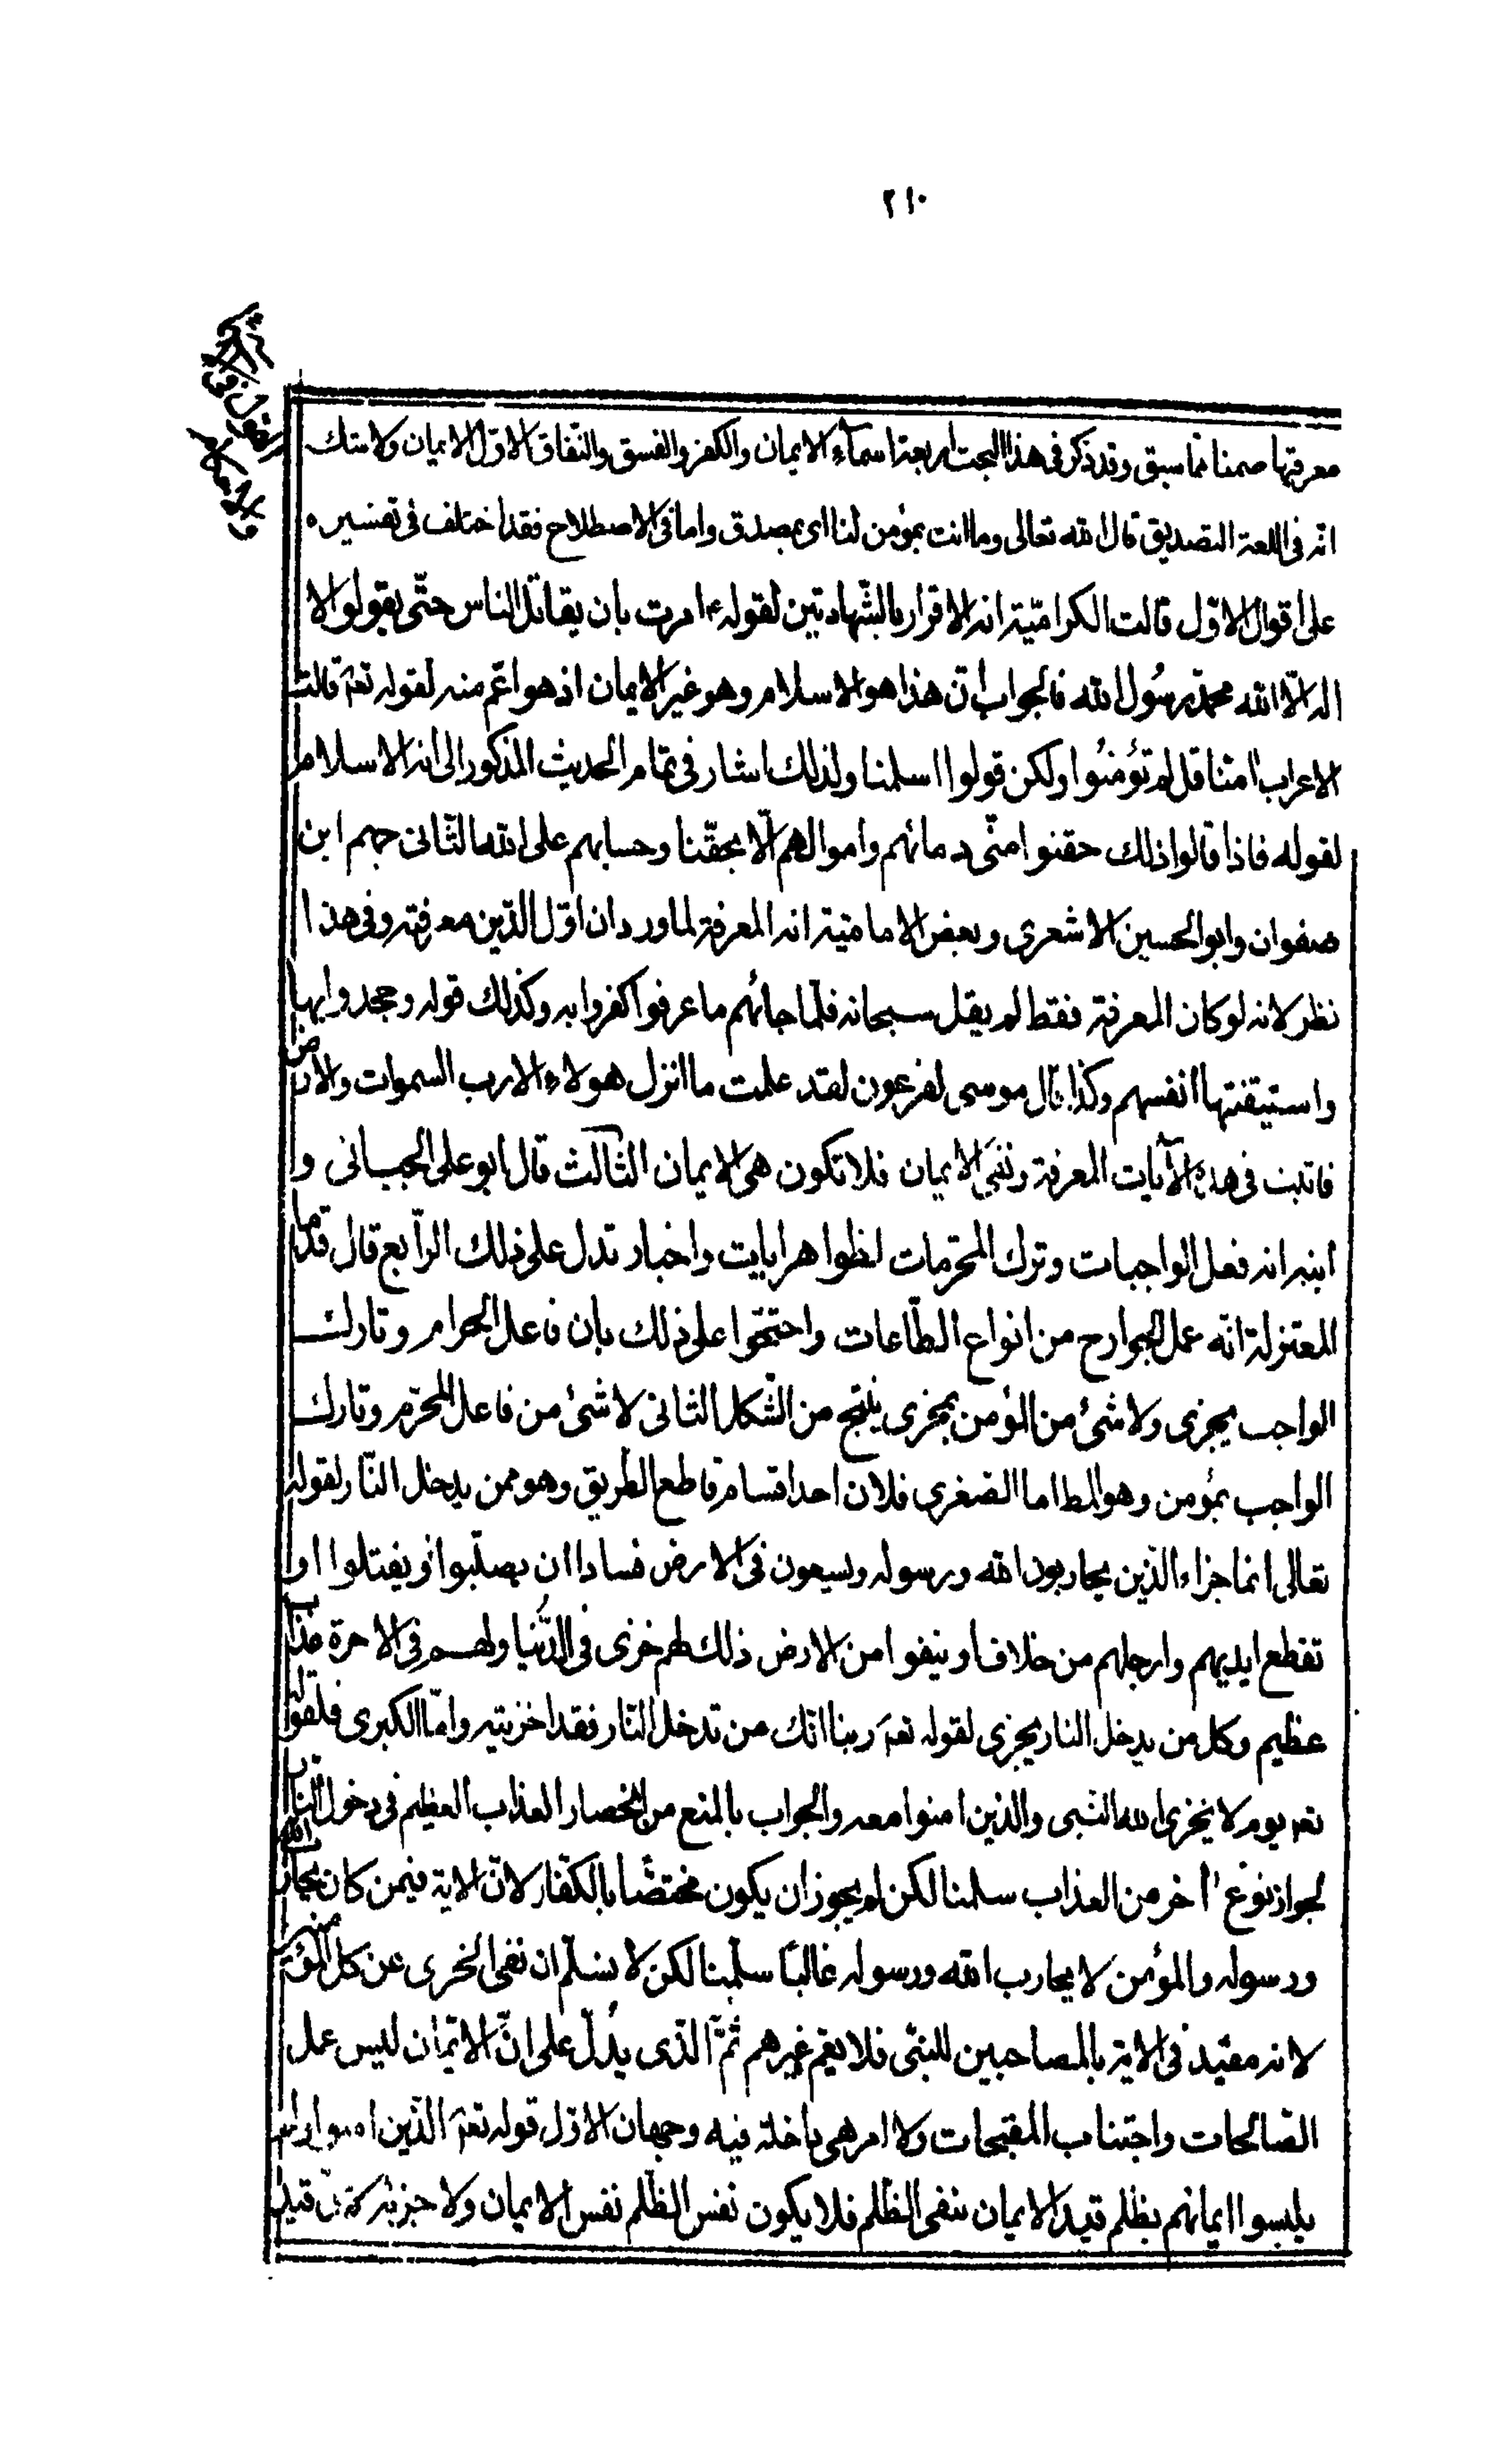 ٢١٠
القول فى
والاحكام
معرفتها ضمنا مما سبق وقد ذكر فى هذا البحث اربعة اسمآء الايمان والكفر والفسق والنّفاق الاوّل الايمان ولا شك
انّه فى اللغة التصديق قال الله تعالى وما انت بمؤمن لنا اى بمصدق واما فى الاصطلاح فقد اختلف فى تفسيره
على اقوال الاوّل قالت الكراميّة انه الاقرار بالشّهادتين لقوله ع امرت بان يقاتل الناس حتّى يقولوا لا
اله الّا الله محمّد رسُول الله فالجواب انّ هذا هو الاسلام وهو غير الايمان اذ هو اعّم منه لقوله تعم قالت
الاعراب امنّا قل لم تؤمنُوا ولكن قولوا اسلمنا ولذلك اشار فى تمام الحديث المذكور الى انه الاسلام
لقوله فاذا قالوا ذلك حقنوا منّى دمائهم واموالهم الّا بحقّنا وحسابهم على الله الثّانى جهم ابن
صفوان وابو الحسين الاشعرى وبعض الاماميّة انه المعرفة لما ورد ان اوّل الدّين معرفته وفى هذا
نظر لانه لو كان المعرفة فقط لم يقل سبحانه فلمّا جائهم ما عرفوا كفروا به وكذلك قوله وجحدوا بها
واستيقنتها انفسهم وكذا قال موسى لفرعون لقد علمت ما انزل هولاء الا رب السموات والارض
فاثبت فى هذه الآيات المعرفة ونفى الايمان فلا تكون هى الايمان الثالث قال ابو على الجبائى و
ابنه انه فعل الواجبات وترك المحرّمات لظواهر ايات واخبار تدل على ذلك الرّابع قال قدما
المعتزلة انّه عمل الجوارح من انواع الطّاعات واحتجّوا على ذلك بان فاعل الحرام وتارك
الواجب يخزى ولا شئ من المؤمن بمخزى ينتج من الشّكل الثانى لا شئ من فاعل المحرّم وتارك
الواجب بمؤمن وهو المط اما الصّغرى فلان احد اقسامه قاطع الطّريق وهو ممن يدخل النّار لقوله
تعالى انما جزاء الذّين يحاربون الله ورسوله ويسعون فى الارض فسادا ان يصلّبوا او يقتلوا او
تقطع ايديهم وارجلهم من خلاف او ينفوا من الارض ذلك لهم خزى فى الدُّنيا ولهم فى الاخرة عذاب
عظيم وكل من يدخل النار يخزى لقوله تعم ربنا انّك من تدخل النّار فقد اخزيته وامّا الكبرى فلقوله
تعم يوم لا يخزى الله النّبى والذين امنوا معه والجواب بالمنع من انحصار العذاب العظيم فى دخول النّار
لجواز نوع اخر من العذاب سلمنا لكن لم يجوز ان يكون مختصّا بالكفّار لانّ الاية فيمن كان يحارب الله
ورسوله والمؤمن لا يحارب الله ورسوله غالبًا سلّمنا لكن لا نسلّم ان نفى الخزى عن كل المؤمنين
لانه مقيّد فى الاية بالمصاحبين للنبّى فلا يعّم غيرهم ثمّ الذّى يدُلّ على انّ الايمان ليس عمل
الصّالحات واجتناب المقبحات ولا امر هى داخلة فيه وجهان الاوّل قوله تعم الذّين امنوا ولم
يلبسوا ايمانهم بظلم قيد الايمان بنفى الظّلم فلا يكون نفس الظّلم نفس الايمان ولا جزئه قيد